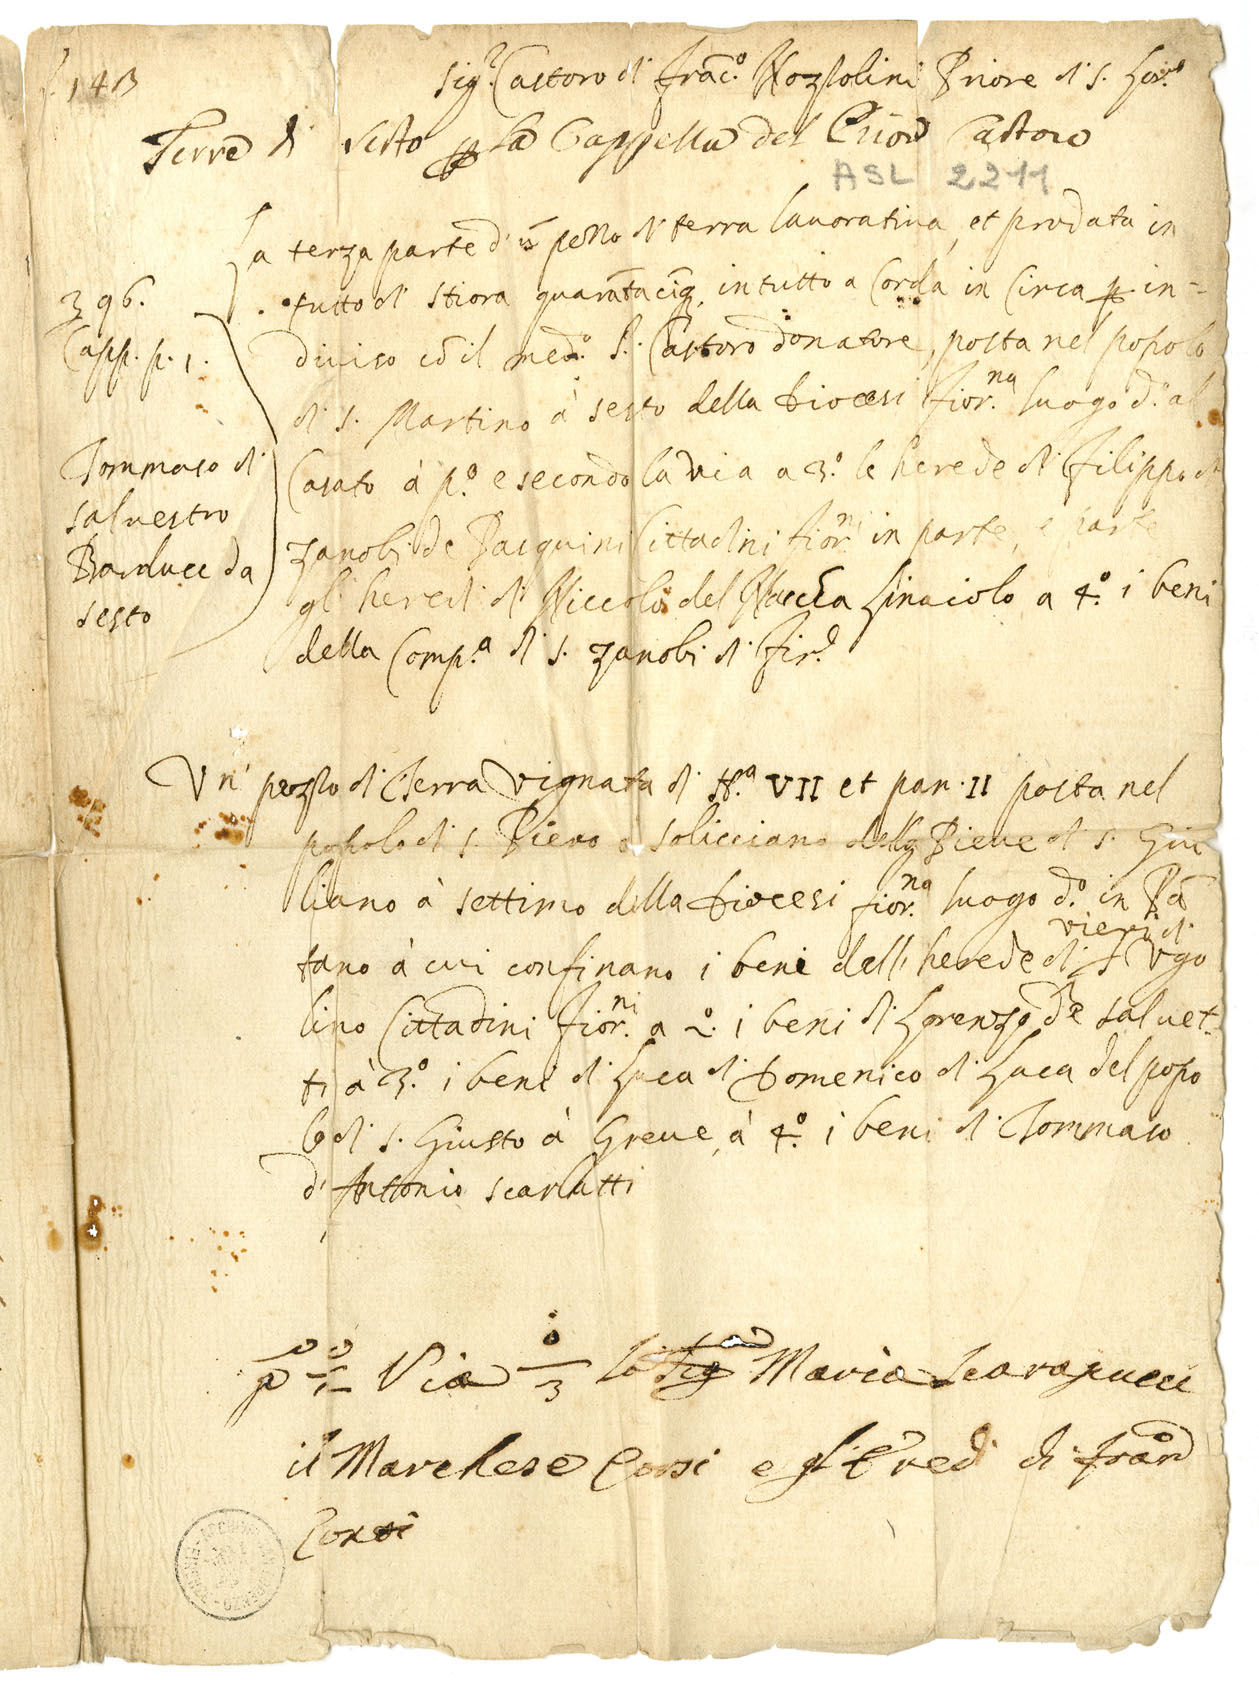 143
Sig.r Castoro di Franc.o Nozzolini Priore di S. Lor.o
Terre di Sesto p la Cappella del Prior Castoro
ASL 2211
La terza parte d' un pezzo di terra lauoratiua, et prodata in
396. tutto di stiora quarātacinq in tutto a Corda in Circa p in=
Capp. p. 1. diuiso cō il med.o S. Castoro donatore, posta nel popolo
di S. Martino à Sesto della Diocesi fior.na luogo d.o al
Tommaso di Casato à p.o e secondo la via a 3.o le herede di Filippo di
saluestro Zanobi de Pasquini Cittadini fior.ni in parte, e parte
Barducci da gl' heredi di Niccolo del Linaiolo a 4.o i beni
sesto della Comp.a di S. Zanobi di Fir.
Vn' pezzo di Terra Vignata di st.a VII et pan. II posta nel
popolo di S. Piero a Solicciano della Pieue di S. Giu
liano à settimo della Diocesi fior.na luogo d.o in Pā
vieri di
tano à cui confinano i beni delli herede di Vgo
lino Cittadini fior.ni a 2.o i beni di Lorenzo de saluet-
ti à 3.o i beni di Luca di Domenico di Luca del popo
lo di S. Giusto à Greue, à 4.o i beni di Tommaso
d' Antonio scarlatti
p Via 3 la Sig.ra Maria Scarapucci
il Marchese Corsi e gl' Eredi di Fran.o
Corsi